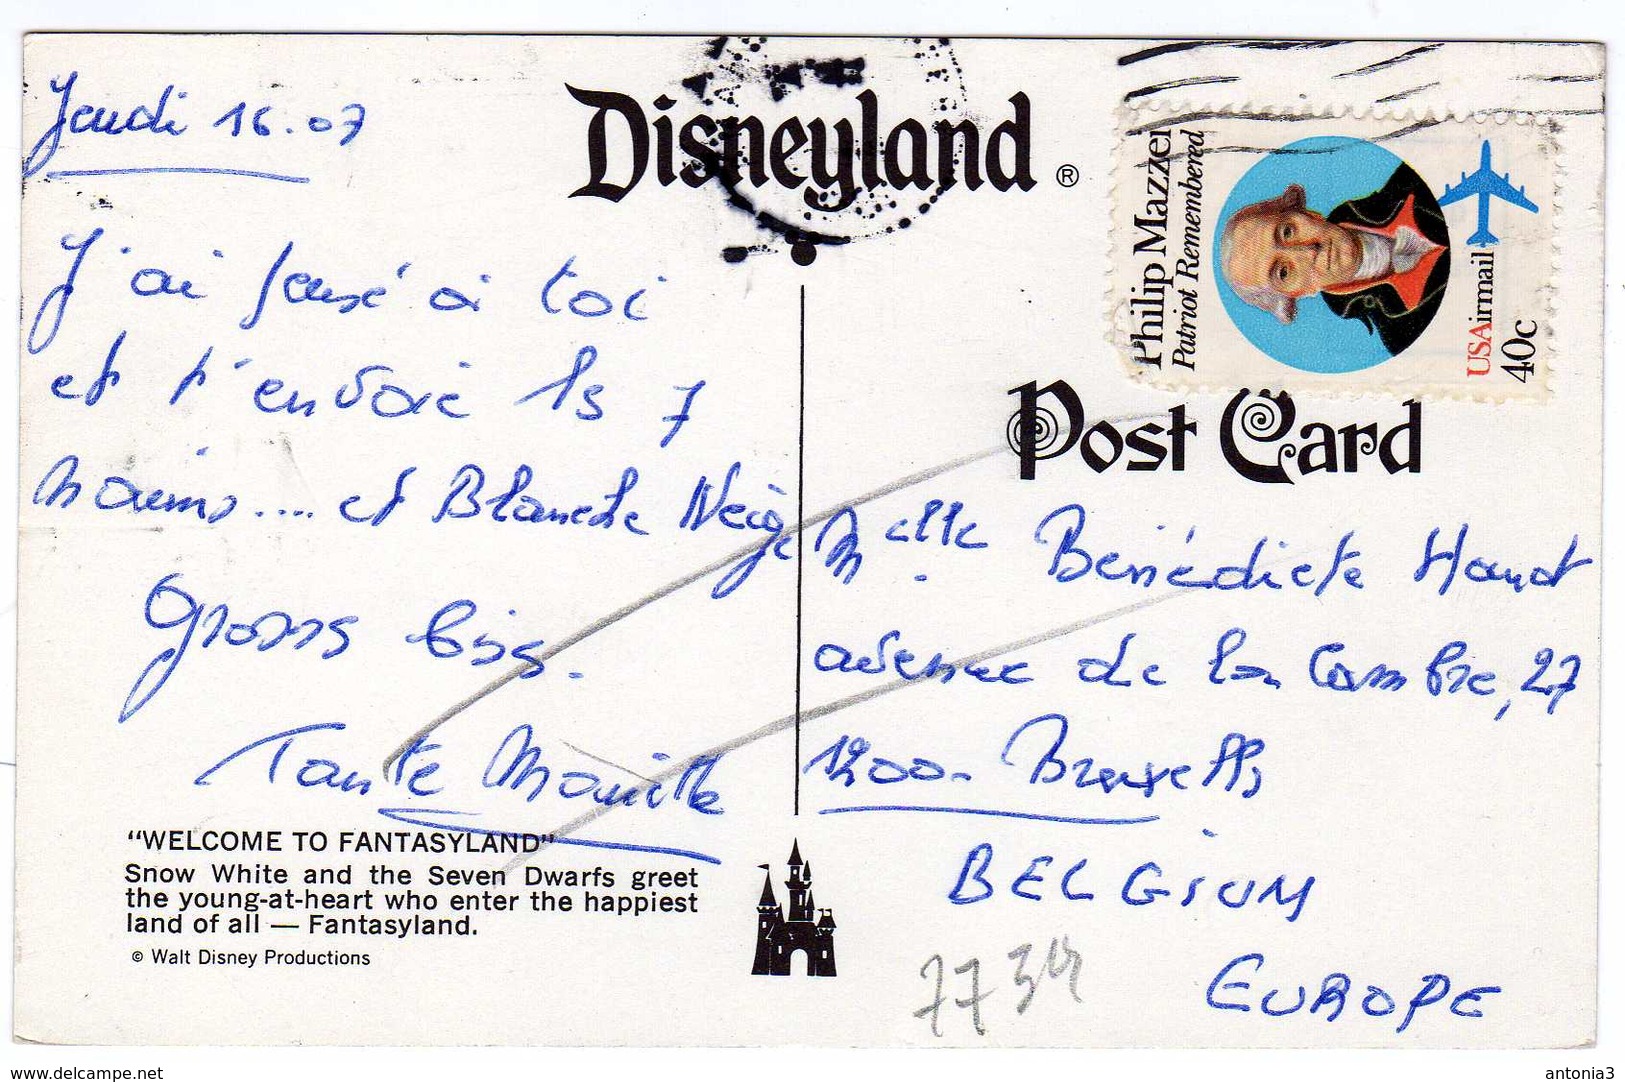 Jeudi 16.07
J'ai pensé à toi
et t'envoie les 7
nains.... et Blanche Neige
Grosses bises.
Tante
"WELCOME TO FANTASYLAND"
Snow White and the Seven Dwarfs greet
the young-at-heart who enter the happiest
land of all — Fantasyland.
© Walt Disney Productions
Disneyland ®
Philip Mazzei
Patriot Remembered
USAirmail
40c
Post Card
Melle Bénédicte
avenue de la Cambre, 27
1200- Bruxelles
BELGIUM
EUROPE
www.delcampe.net
antonia3